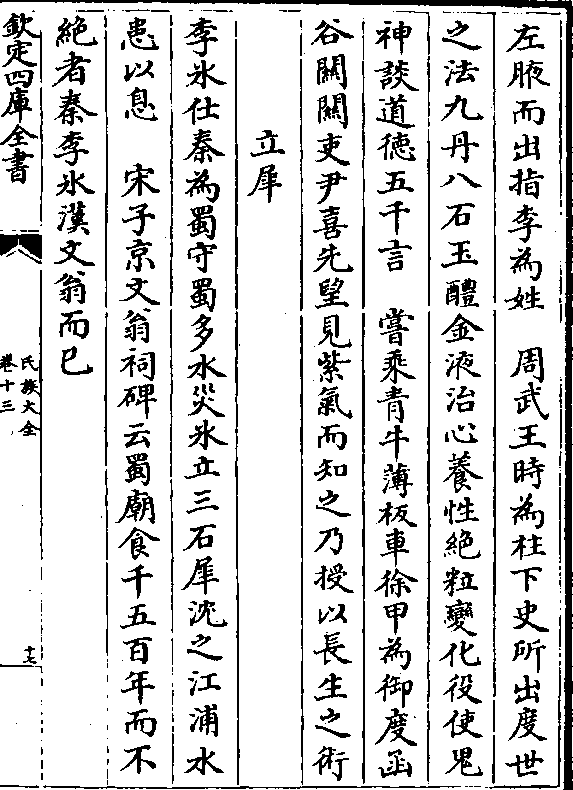 左腋而出指李為姓　周武王時為柱下史所出度世
之法九丹八石玉醴金液治心養性絶粒變化役使鬼
神談道德五千言　嘗乘青牛薄板車徐甲為御度函
谷關關吏尹喜先望見紫氣而知之乃授以長生之術
立犀
李氷仕秦為蜀守蜀多水災氷立三石犀沈之江浦水
患以息　宋子京文翁祠碑云蜀廟食千五百年而不
絶者秦李氷漢文翁而已
欽定四庫全書
氏族大全
卷十三
十七